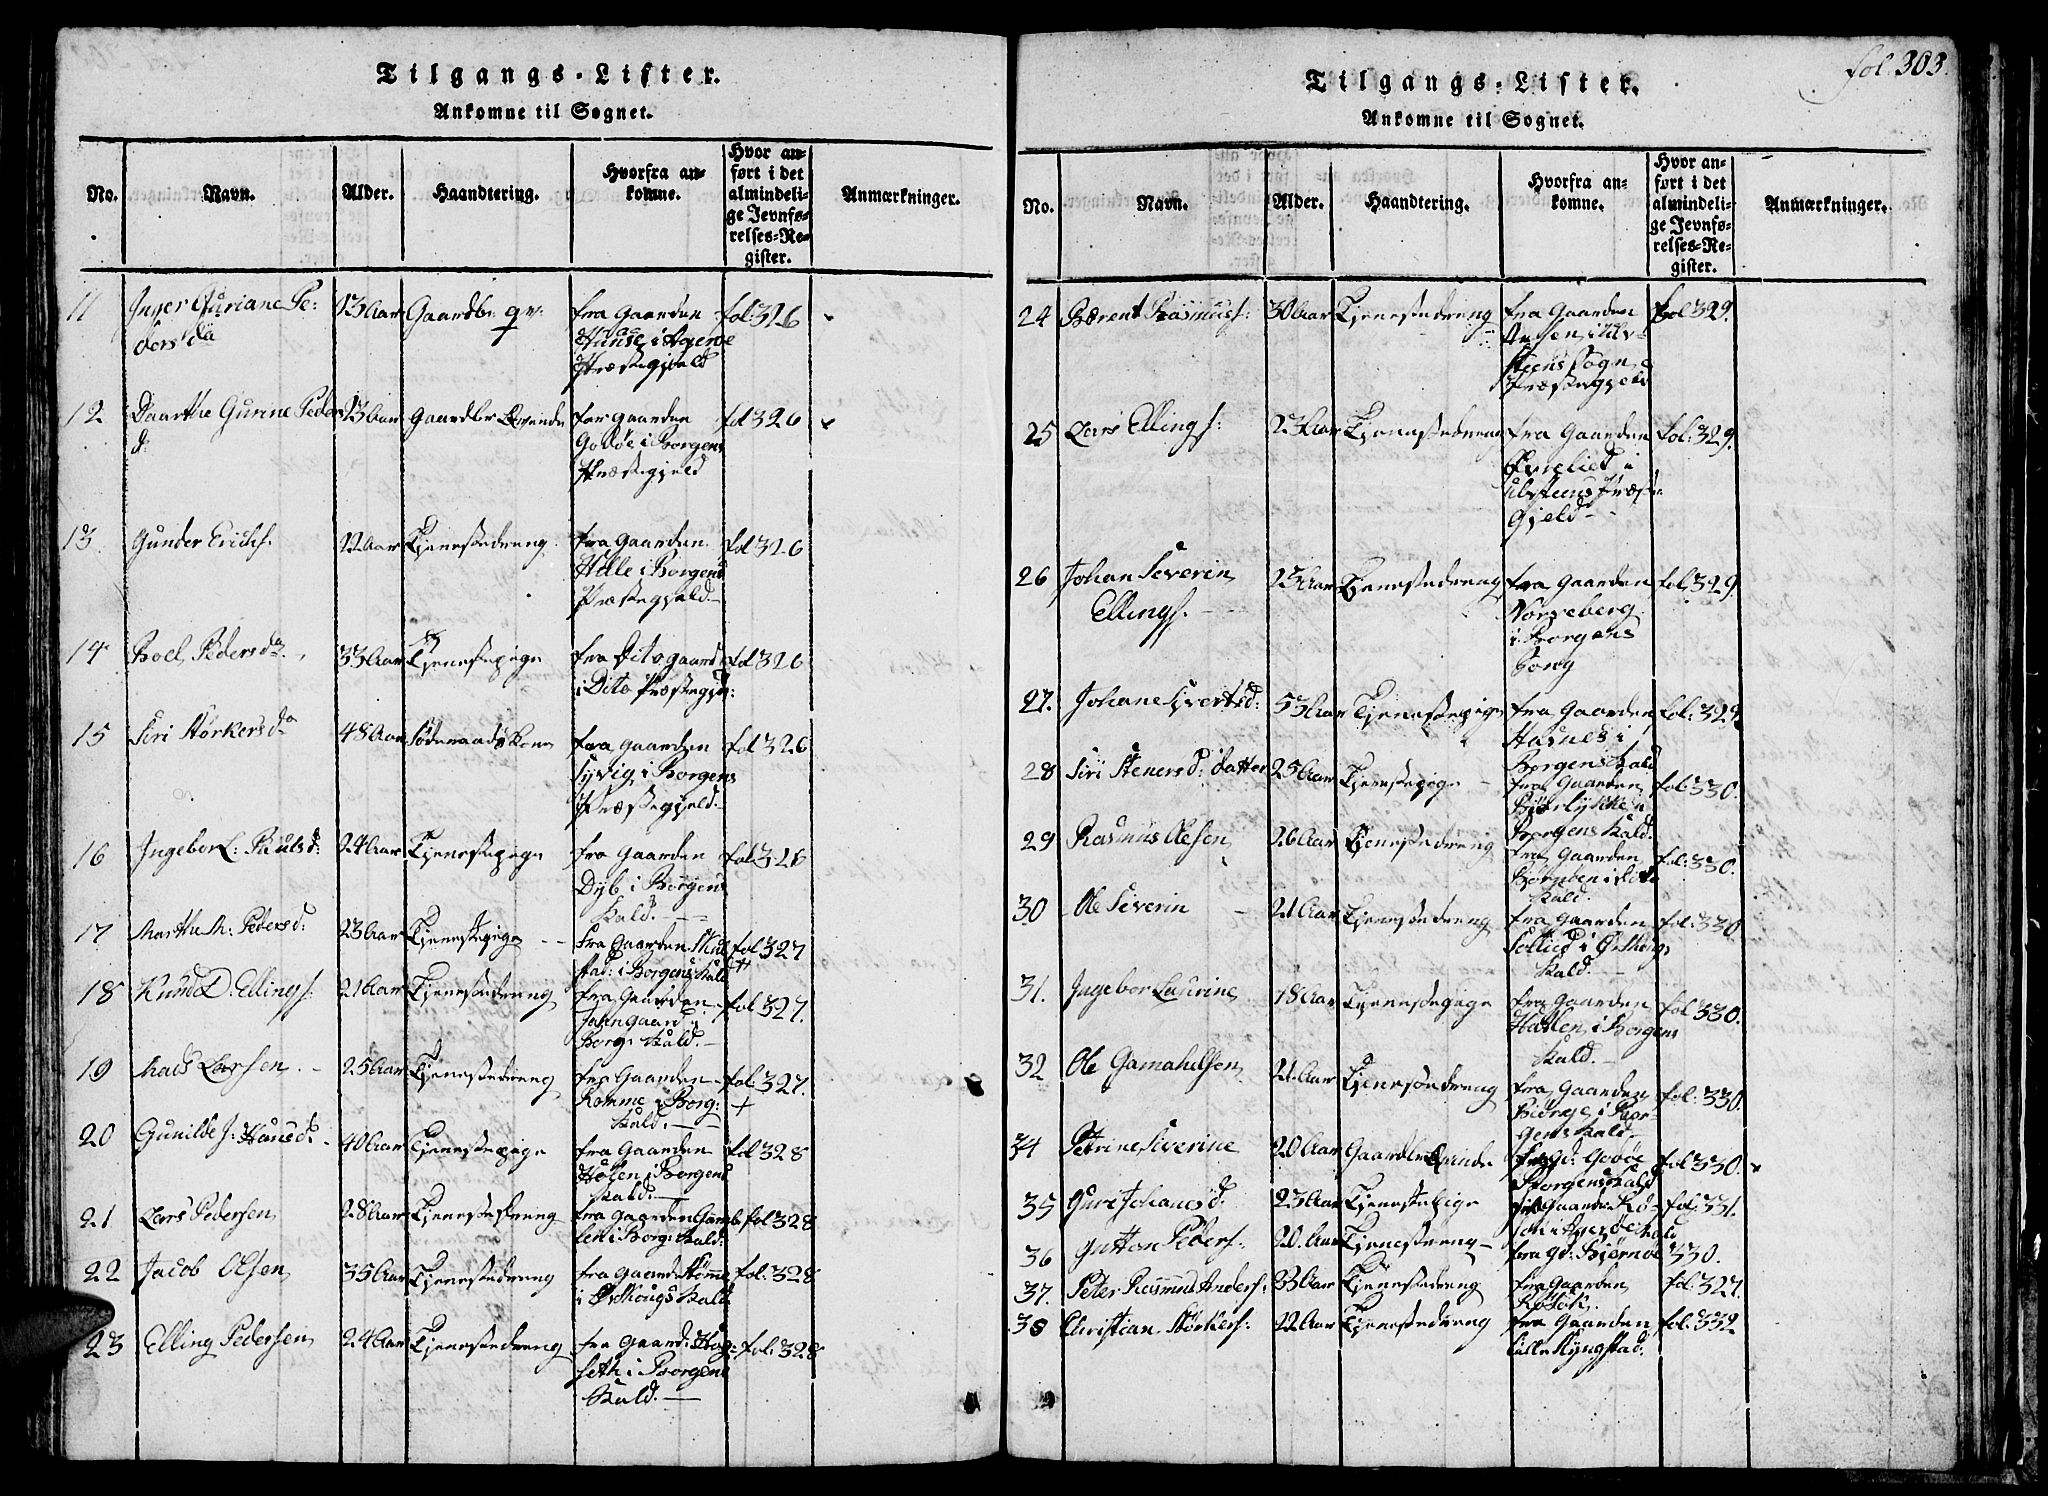 Tilgangs-Lister.
Ankomne til Sognet.
No. Navn. Alder. Haandtering. Hvorfra ankomne. Hvor anført i det almindelige Jevnførelses-Register. Anmærkninger.
11 Inger Guriane Pe: 23 Aar Gaardbr: qv: fra Gaarden fol: 326
dersda i Agerøe
Præstegjeld
12 Daarthe Gurine Peders 23 Aar Gaardbr Qvinde far Gaarden fol 326
d: Godøe i Borgens
Præstegjeld
13 Gunder Erichs: 22 Aar Tjenestedreng fra Gaarden fol 326
Helle i Borgens
Præstegjeld.
14 Boel Pedersda. 33 Aar Tjenestepige fra Dito gaard fol 326
i Dito Præstegje:
15 Siri Størkersda 48 Aar Føderaadskone fra Gaarden fol 326
i Borgens
Præstegjeld.
16 Ingebor L: Poulsd: 24 Aar Tjenestepige fra Gaarden fol 326
Dyb i Borgens
Kald.
17 Marthe M: Pedersd: 23 Aar Tjenestepige fra Gaarden fol 327
stad: i Borgens Kald +
18 Knud D: Ellings: 21 Aar Tjenestedreng fra Gaarden fol 327.
i
Borg: Kald.
19 Mads Larsen 25 Aar Tjenestedreng fra Gaarden fol: 327.
i Borg: +
Kald.
20 Gunilde J: Hansd: 40 Aar Tjenestepige fra Gaarden fol 328
Hollen i Borgens
Kald.
21 Lars Pedersen 28 Aar Tjenestedreng fra Gaarden fol 328
i Borg: Kald:
22 Jacob Olsen 35 Aar Tjenestedreng fra Gaard fol: 328
i Ørskougs Kald
23 Elling Pedersen 24 Aar Tjenestedreng fra Gaard: fol: 328
seth i Borgens
Kald.
fol 303.
Tilgangs-Lister.
Ankomne til Sognet.
No. Navn. Alder. Haandtering. Hvorfra ankomne. Hvor anført i det almindelige Jevnførelses-Register. Anmærkninger.
24 Bærent Rasmus: 30 Aar Tjenestedreng fra Gaarden fol 329.
i Ulv-
steens Sogn
Præstegjeld
25 Lars Ellings: 23 Aar Tjenestedreng fra Gaarden fol: 329.
i
Ulvsteens Præste
Gjeld
26 Johan Severin 25 Aar Tjenestedreng fra Gaarden fol 329.
Ellings. Norseberg
i Borgens
27. Johane Iversd: 53 Aar Tjenestepige fra Gaarden fol: 329
Hasnes i
Borgens Kald
28 Siri Stenersd: datter 25 Aar Tjenestepige fra Gaarden fol: 330.
Bjørlykke i
Borgens Kald.
29 Rasmus Olsen 26 Aar Tjenestedreng fra Gaarden fol: 330.
i
Kald.
30 Ole Severin 21 Aar Tjenestedreng fra Gaarden fol: 330
Sollied i Ørskougs
Kald.
31. Ingebor Laurine 18 Aar Tjenestepige fra Gaarden fol 330.
i Borgens
Kald.
32 Ole Gamalielsen 21 Aar Tjenestedreng fra Gaarden fol: 330.
i Bor-
gens Kald
34 Petrine Severine 20 Aar Gaardbr Qvinde fra Gd: Godøe fol 330.
Borgens Kald
35 Guri Johansd. 23 Aar Tjenestepige Gaarden Rø- fol: 331.
i Agerøe Kald
36 Gutton Peders: 20. Aar Tjenestreng fra Gd: Bjørnøe 330.
37. Peter Rasmus Anders: 33 Aar Tjenestedreng fra Gaarden fol: 327.
38 Christian Størkers: 22 Aar Tjenestedreng fra Gaarden fol: 332
Lille Ryngstad.